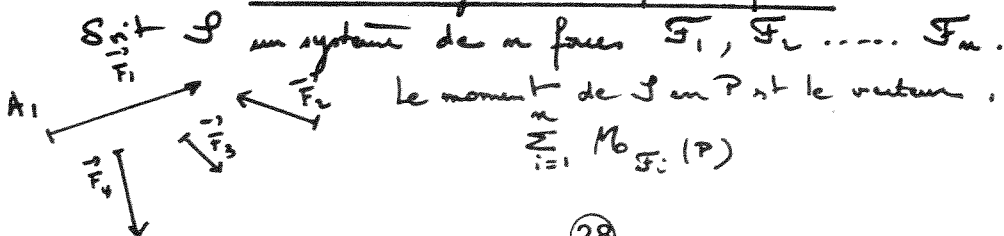 Soit 𝒮 un système de n forces ℱ₁, ℱ₂ ..... ℱₙ.
F⃗₁
A₁
F⃗₂
Le moment de 𝒮 en P est le vecteur :
F⃗₃
∑ⁿᵢ₌₁ Mo ℱᵢ (P)
F⃗₄
28